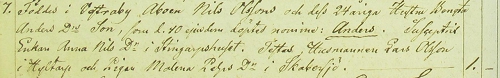 7. Föddes i Pettraby Aboen Nils Olssons och dess 24 åriga Hustru Bengta
Anders Dr Son, som d. 10 ejusdem döptes nomine: Anders. Susceptrix
Enkan Anna Nils Dr i Stingarpshuset. Testes Husmannen Lars Olsson
i och Pigan Malena Pehrs Dr i Skabersjö. 1.-